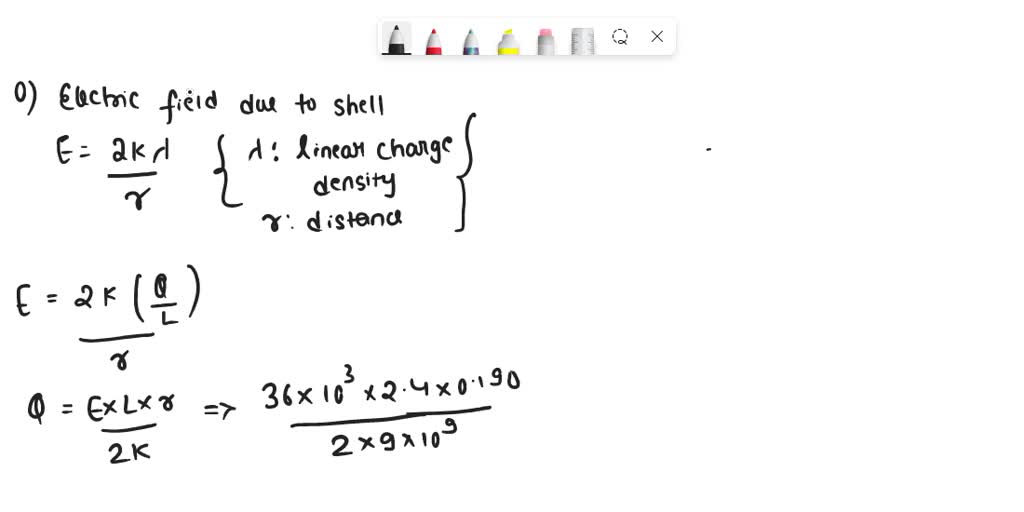 a) Electric field due to shell
E = 2kλ / r { λ: linear charge density
r: distance }
E = 2k (Q/L) / r
Q = E×L×r / 2k => 36×10³×2.4×0.190 / 2×9×10⁹